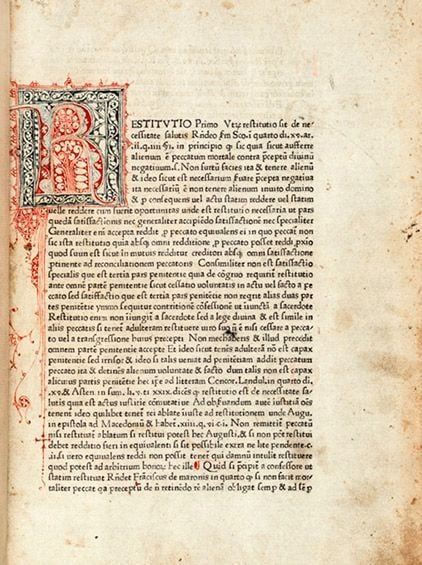 RESTITVTIO Primo Vtꝝ restitutio sit de ne
cessitate salutis Rñdeo ẜm Sco.ī quarto di.xv.ar.
ii.q.iiii in principio ꝙ sic quia sicut aufferre
alienum ē peccatum mortale contra p̄ceptū diuinū
negatiuum.s. Non furtū facies ita & tenere alienū
& ideo sicut est necessarium ẜuare p̄cepta negatiua
ita necessariū ē non tenere alienum inuito domino
& p consequens uel actu statim reddere uel statim
uelle reddere cum fuerit oportunitas unde est restitutio necessaria ut pars
quedā satisfactionis nec generaliter accipiēdo satisfactionē nec specialiter
Generaliter eni accepta reddit ꝓ peccato equiualens ei in quo peccat̄ non
sic ista restitutio quia absꝗ omni redditione ꝓ peccato posset reddi ꝓxio
quod suum est sicut in mutuis redditur creditori absꝗ omni satisfactione
ptinente ad reconciliationem peccatoris Consimiliter non est satisfactio
specialis que est tertia pars penitentie quia de cōgruo requirit̄ restitutio
ante omnē partē penitentie sicut cessatio voluntatis in actu uel facto a pec
cato sed satisfactio que est tertia pars penitētie non reqrit alias duas par
tes penitētie ymmo sequitur contritionē cōfessionē ut iniuncta a sacerdote
Restitutio enim non iungit̄ a sacerdote sed a lege diuina & est simile in
aliis peccatis si tenet̄ adulteram restituere uiro suo nisi cessare a pecca
to uel a transgressione huius precepti Non mechaberis & illud precedit
omnem partē penitentie accepte Et ideo sicut tenēs adulterā nō est capax
penitentie sed irrisor & ideo si talis ueniat ad penitētiam addit peccatum
peccato ita & detinēs alienum uoluntate & facto dum talis non est capax
alicuius partis penitētie hec ip̄e ad litteram Concor. Landul. in quarto di.
xv. & Asten in sum. li.v.ti xxix.dicēs ꝙ restitutio est de necessitate sa
lutis quia est actus iustitie cōmutatiue Ad obẜuandum autē iustitiā oēs
tenent̄ ideo quilibet tenet̄ rei ablate iuste ad restitutionem unde Augu.
in epistola ad Macedoniū & habet̄.xiiii.q.vi.c.i. Non remittit̄ peccatū
nisi restituat̄ ablatum si restitui potest hec Augusti. & si non pōt restitui
debet redditio fieri in equiualenti si sit possibile extra ne lite pendente.c.
ii.si uero equiualens reddi non possit tenet̄ qui damnū intulit restituere
quod potest ad arbitrium bonoꝝ hec ille Quid si p̄cipit̄ a confessore ut
statim restituat Rñdet Frāciscus de maronis in quarto ꝙ si non facit mor
taliter peccat qa preceptū de nō retinēdo rē alienā obligat semp & ad semp